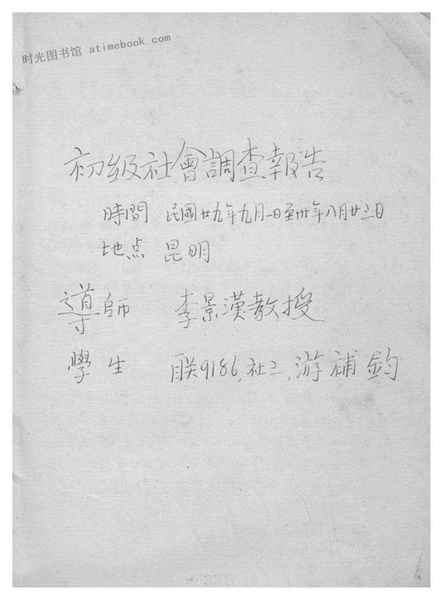 时光图书馆 atimebook.com
初级社會調查報告
時間 民國廿九年九月一日至卅年八月廿三日
地点 昆明
導師 李景漢教授
學生 联9186,社二,游補鈞